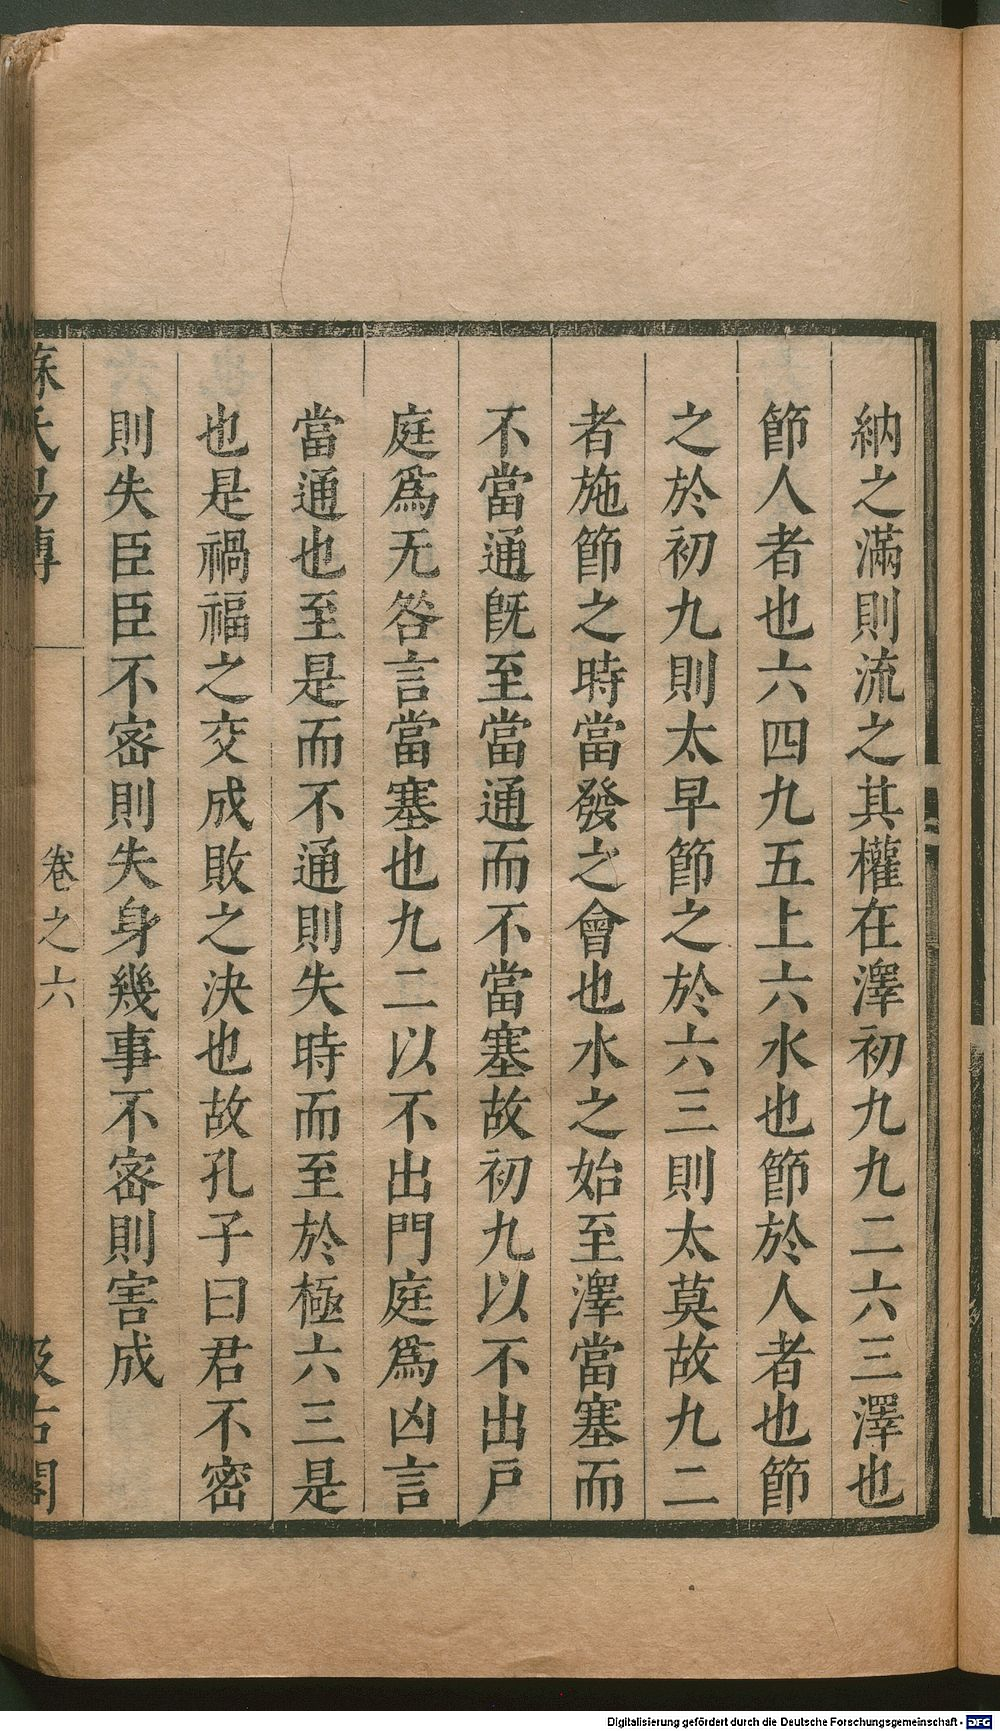 納之滿則流之其權在澤初九九二六三澤也
節人者也六四九五上六水也節於人者也節
之於初九則太早節之於六三則太莫故九二
者施節之時當發之會也水之始至澤當塞而
不當通旣至當通而不當塞故初九以不出戸
庭爲无咎言當塞也九二以不出門庭爲凶言
當通也至是而不通則失時而至於極六三是
也是禍福之交成敗之決也故孔子曰君不密
則失臣臣不密則失身幾事不密則害成
蘇氏易傳
卷之六
汲古閣
Digitalisierung gefördert durch die Deutsche Forschungsgemeinschaft - DFG